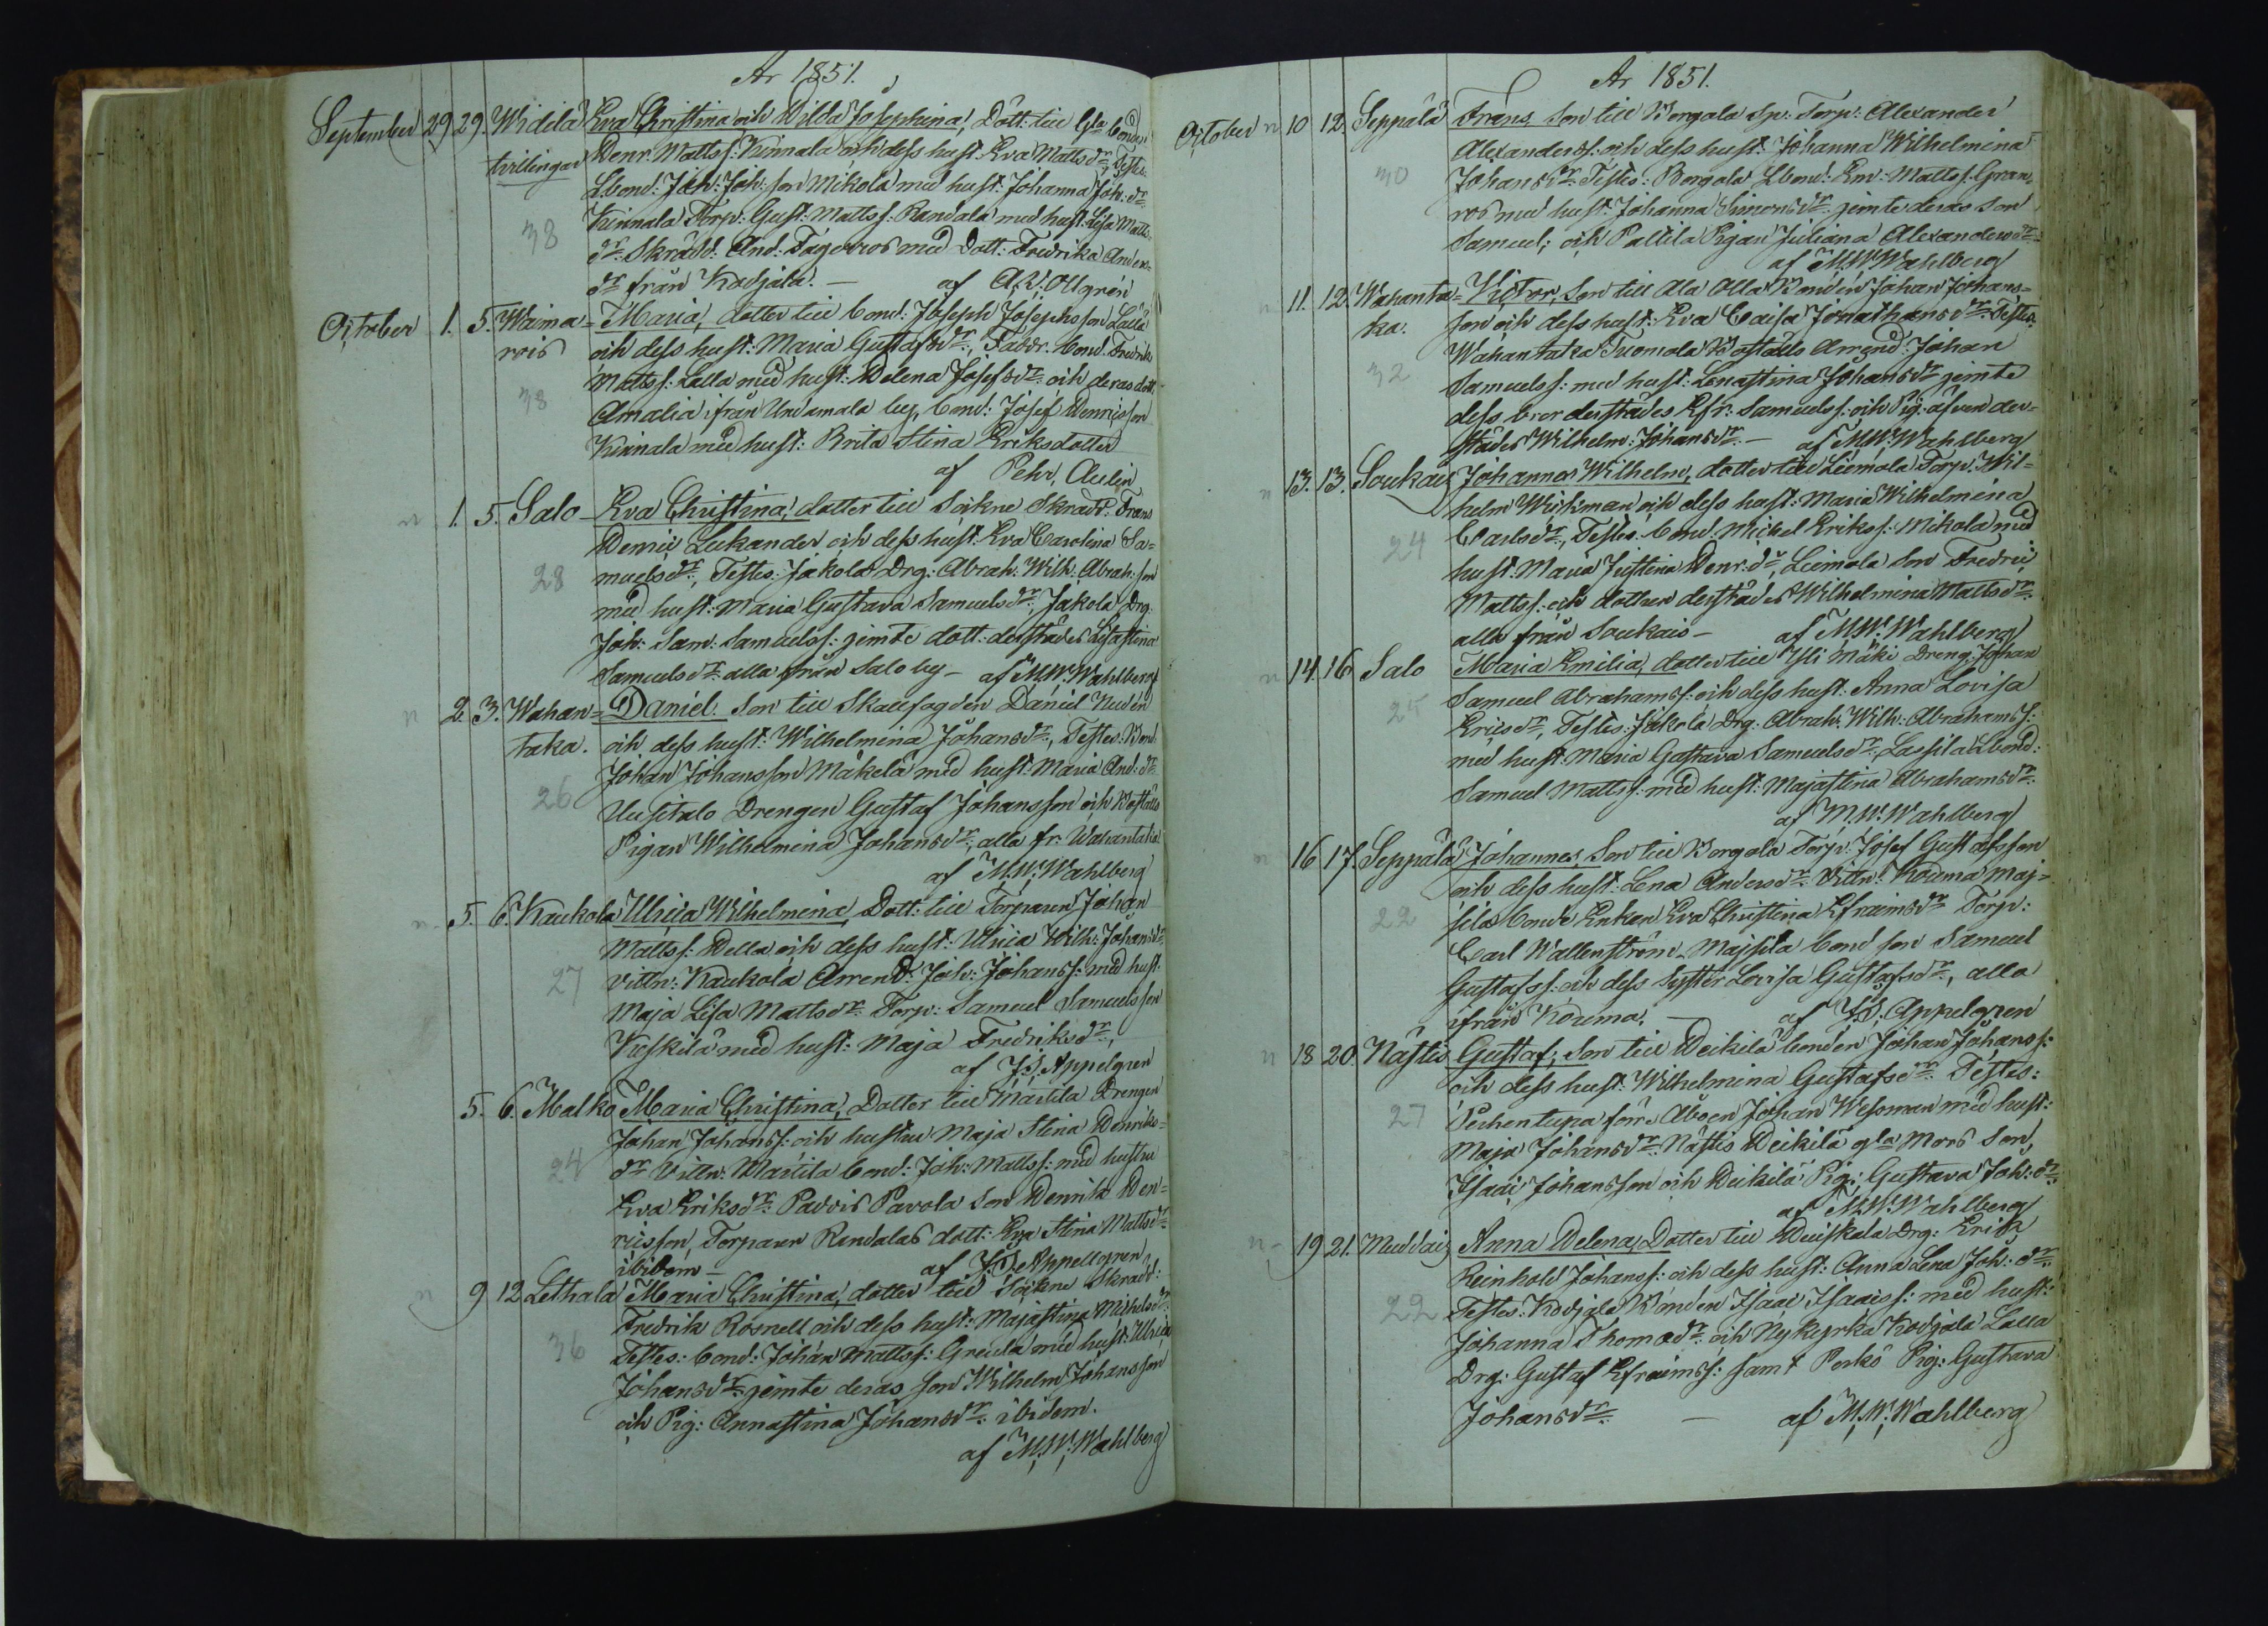 År 1851.
September 29 29. Widila Eva Christina och Wilda Josephina, Dött: till Gla bonden
tvillingar Henr. Mattss: Kinnala och dess hust: Eva Mattsdr, Testes:
Lbond: Joh: Joh: son Mikola med hust: Johanna Joh: dr
Kinnala Torp: Gust: Mattss: Randala med hust: Lisa Matts-
38 dr Skrädd: And: Fagerros med Dott: Fredrika Anders-
dr från Kadjala. — af A.V. Ollgrén
October 1. 5. Waima- Maria, dotter till bond: Joseph Josephsson Lalla
rois och dess hust: Maria Gustafsdr, Faddr. bond. Fredrik
Mattss: Lalla med hust: Helena Josefsdr och deras dott.
38 Amalia ifrån Undamala by, bond: Josef Henricsson
Kinnala med hust: Brita Stina Eriksdotter
af Pehr Aulin
n 1. 5. Salo Eva Christina, dotter till Sockne Skradd. Frans
Henric Lukander och dess hust: Eva Carolina Sa=
28 muelsdr, Testes: Jakola Drg: Abrah: Wilh: Abrah: son
med hust: Maria Gustava Samuelsdr, Jakola Drg.
Joh: Sam: Samuelss: jemte dott: derstädes Lisastina
Samuelsdr alla från Salo by — af M.W. Wahlberg
n 2. 3. Wahan= Daniel. Son till Skallfogden Daniel Nudén
taka. och dess hust: Wilhelmina Johansdr, Testes: Bond:
Johan Johansson Mäkelä med hust: Maria And: dr
26 Uusitalo Drengen Gustaf Johansson och Boställs
Pigan Wilhelmina Johansdr, alla fr. Wahantaka
af M.W. Wahlberg
n 5. 6. Kaukola Ulrica Wilhelmina, Dott: till Torparen Johan
Mattss: Hella och dess hust: Ulrica Wilh: Johansdr
27 vittn: Kaukola Arrend: Joh: Johanss: med hust:
Maja Lisa Mattsdr Torp: Samuel Samuelsson
Kuskila med hust: Maja Fredriksdr,
af J.S. Appelgren
5. 6. Malko Maria Christina, Dotter till Martila Drengen
Johan Johanss: och hustru Maja Stina Henriks=
24 dr Vittn: Martila bond: Joh: Mattss: med hustru
Eva Eriksdr Padvis Pavola Son Henrik Hen=
ricsson, Torparen Rendalas dott: Eva Stina Mattsdr
ibidem — af J.S. Appellgren
n 9 12 Lethala Maria Christina, dotter till Sockne Skrädd:
Fredrik Rosnell och dess hust: Majastina Michelsdr
36 Testes: bond: Johan Mattss: Greula med hust: Ulrica
Johansdr jemte deras son Wilhelm Johansson
och Pig: Annastina Johansdr ibidem.
af M.W. Wahlberg
År 1851.
October n 10 12. Seppälä Frans Son till Borgala Sp: Torp: Alexander
Alexanderss: och dess hust: Johanna Wilhelmina
30 Johansdr: Testes: Borgala Lbond: Em: Mattss: Gran-
ros med hust: Johanna Simonsdr jemte deras Son
Samuel; och Pallila Pigan Juliana Alexandersdr
af M.W. Wahlberg
n 11. 12. Wahanta= Victor, Son till Ala Olla Bonden Johan Johans=
ka. son och dess hust: Eva Caisa Jonathansdr: Testes:
Wahantaka Tuomola Boställs Arrend: Johan
32 Samuelss: med hust: Lenastina Johansdr jemte
dess bror derstädes Efr: Samuelss: och Pig: äfven der=
städes Wilhelm: Johansdr. — af M.W. Wahlberg
n 13. 13. Soukais Johanna Wilhelm, dotter till Liemola Torp: Wil=
helm Wickman och dess hust: Maria Wilhelmina
24 Carlsdr, Testes: bond: Michel Erikss: Mikola med
hust: Maria Justina Henr: dr, Liemola son Fredric
Mattss: och dottren derstädes Wilhelmina Mattsdr.
alla från Soukais — af M.W. Wahlberg
n 14 16 Salo Maria Emilia, dotter till Yli Mäki Dreng: Johan
Samuel Abrahamss: och dess hust: Anna Lovisa
25 Ericsdr, Testes: Jakola Drg: Abrah: Wilh: Abrahamss:
med hust: Maria Gustava Samuelsdr, Lassila Lbond:
Samuel Mattss: med hust: Majastina Abrahamsdr:
af M.W. Wahlberg
n 16 17. Seppälä Johannes, Son till Borgala Torp: Josef Gustafsson
och dess hust: Lena Andersdr: Vittn: Kouma Maj=
22 sila bonde Enkan Eva Christina Efraimsdr Torp:
Carl Wallenström, Majsila bond son Samuel
Gustafss: och dess syster Lovisa Gustafsdr, alla
ifrån Kouma. — af J.S. Appelgren
n 18 20. Nästis Gustaf, Son till Heikilä bonden Johan Johanss:
och dess hust: Wilhelmina Gustafsdr: Testes:
27 Pechentupa förre Åboen Johan Wessman med hust:
Maja Johansdr: Nästis Heikilä gla Mors Son,
Isaac Johansson och Heikilä Pig: Gustava Joh: dr:
af M.W. Wahlberg
n 19 21. Muddais Anna Helena, Dotter till Huiskala Drg: Erik
Reinhold Johanss: och dess hust: Anna Lena Joh: dr:
22 Testes: Kodjala Bonden Isaac Isaacss: med hust:
Johanna Thomasdr: och Nykyrka Kodjala Lalla
Drg: Gustaf Efraimss: samt Perkö Pig: Gustava
Johansdr. — af M.W. Wahlberg